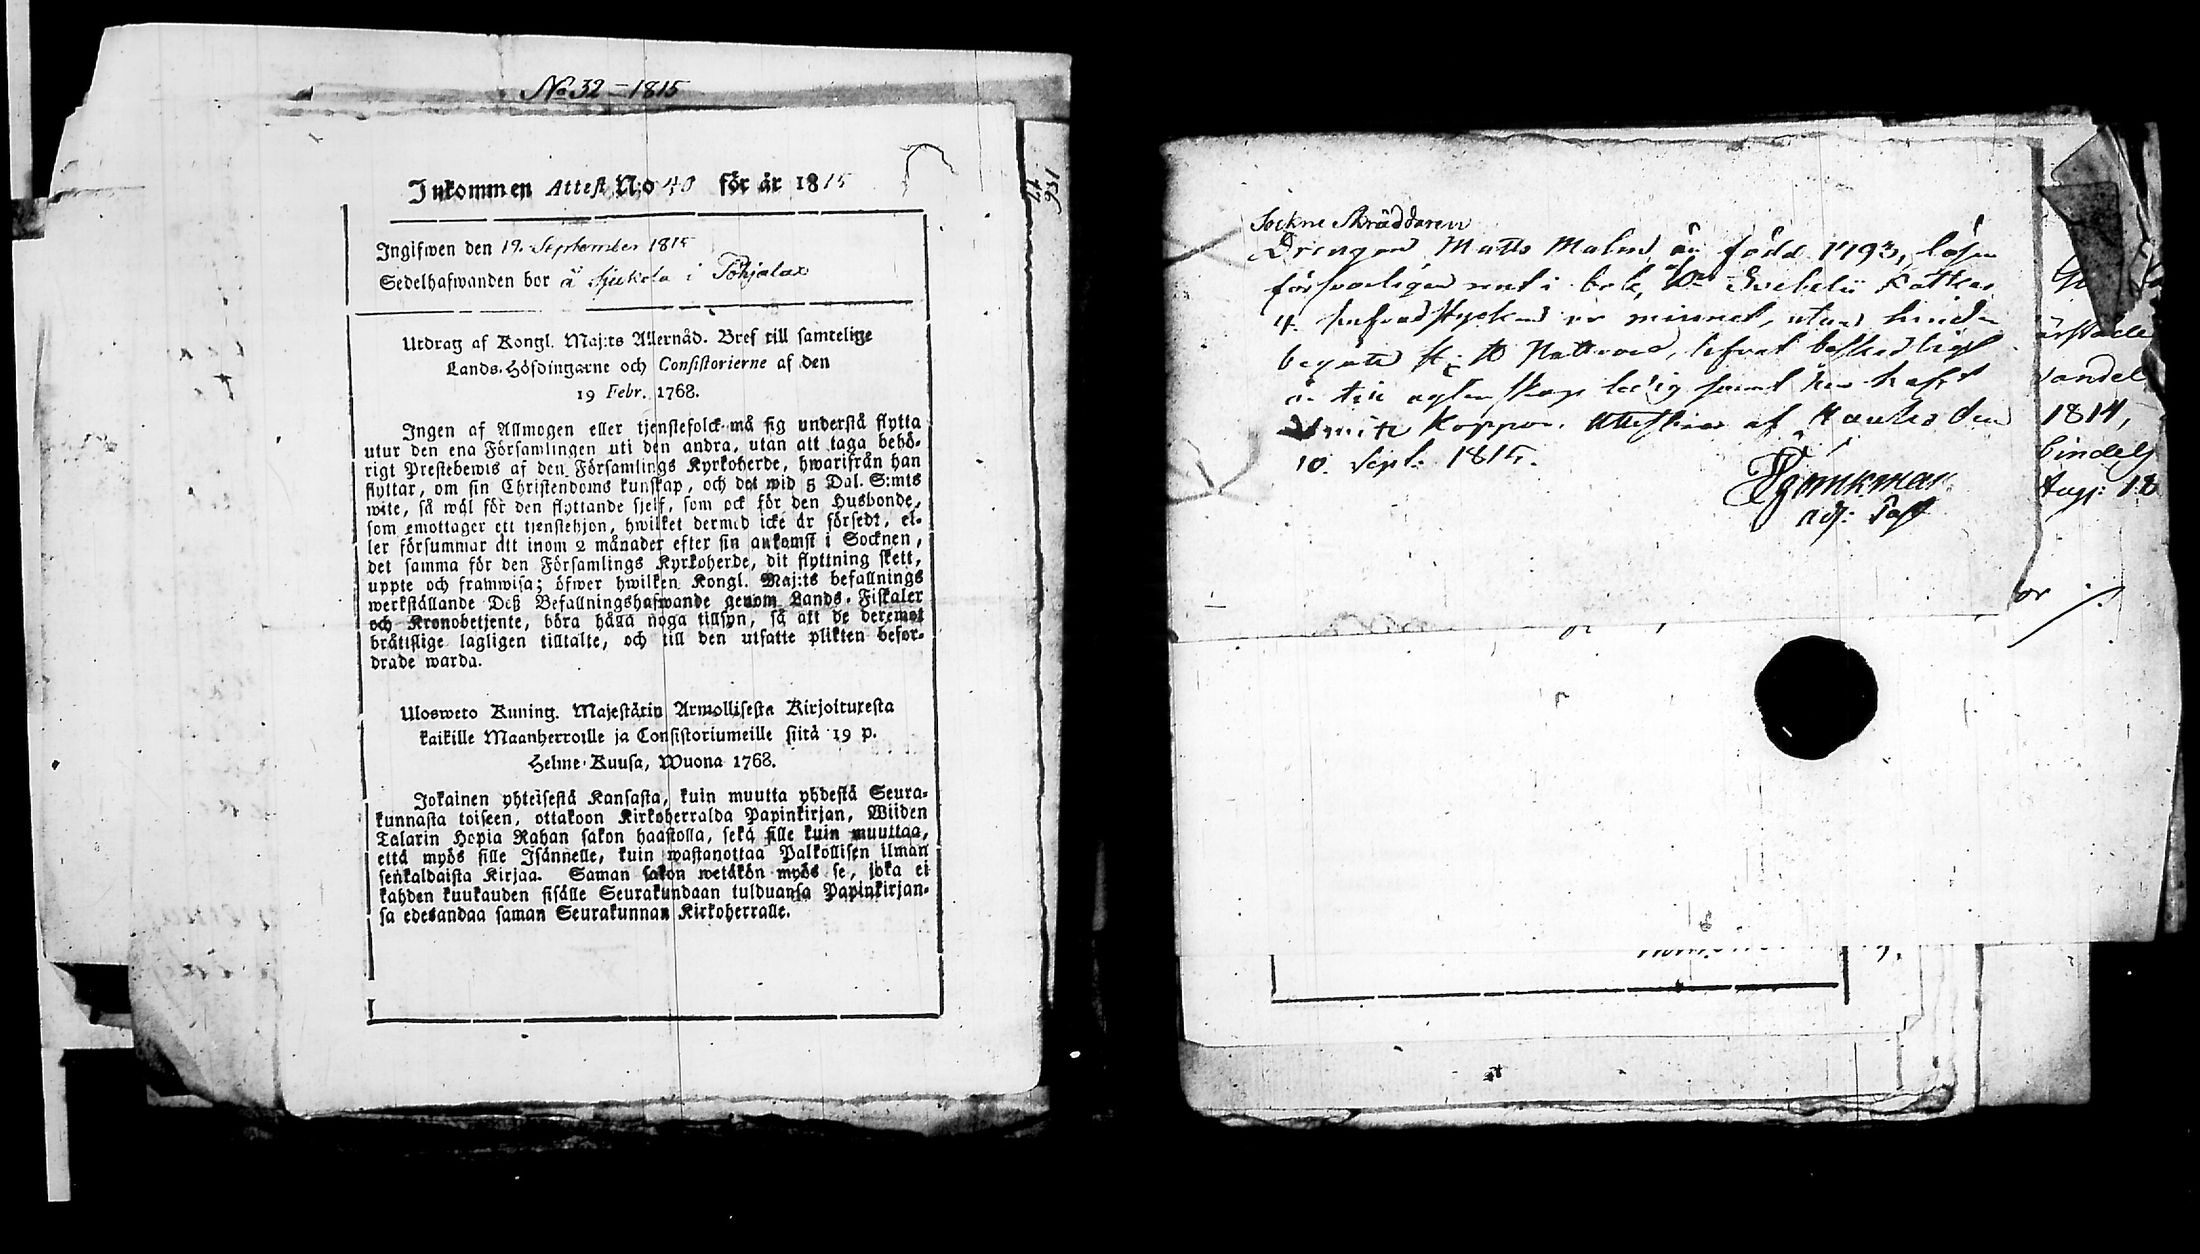 No 32 - 1815
Inkommen Attest N:o 40 för år 1815
Ingifwen den 19. September 1815
Sedelhafwanden bor å Sjukola i Pohjalax
Utdrag af Kongl. Maj:ts Allernåd. Bref till samtelige
Lands-Höfdingarne och Consistorierne af den
19 Febr. 1768.
Ingen af Allmogen eller tjenstefolck må sig understå flytta
utur den ena Församlingen uti den andra, utan att taga behö-
rigt Prestebewis af den Församlings Kyrkoherde, hwarifrån han
flyttar, om sin Christendoms kunskap, och det wid 5 Dal. S:mts
wite, så wäl för den flyttande sjelf, som ock för den Husbonde,
som emottager ett tjenstehjon, hwilket dermed icke är försedt, el-
ler försummar att inom 2 månader efter sin ankomst i Socknen,
det samma för den Församlings Kyrkoherde, dit flyttning skett,
uppte och framwisa; öfwer hwilken Kongl. Maj:ts befallnings
werkställande Deß Befallningshafwande genom Lands-Fiskaler
och Kronobetjente, böra hålla noga tillsyn, så att de deremot
bråttslige lagligen tilltalte, och till den utsatte plikten befor-
drade warda.
Ulosweto Kuning. Majestätin Armollisesta Kirjoituxesta
kaikille Maanherroille ja Consistoriumeille siitä 19 p.
Helme-Kuusa, Wuona 1768.
Jokainen yhteisestä Kansasta, kuin muutta yhdestä Seura-
kunnasta toiseen, ottakoon Kirkoherralda Papinkirjan, Wiiden
Talarin Hopia Rahan sakon haastolla, sekä sille kuin muuttaa,
että myös sille Isännelle, kuin wastanottaa Palkollisen ilman
senkaldaista Kirjaa. Saman sakon wetäkön myös se, joka ei
kahden kuukauden sisälle Seurakundaan tulduansa Papinkirjan-
sa edesandaa saman Seurakunnan Kirkoherralle.
Sockne Skräddaren
Drengen Matts Malm, är född 1793, läser
försvarligen rent i bok,
4. hufvudstycken ur minnet, utan hinder
begåtts H: H: Nattvard, lefvat beskedligt
är till ägtenskap ledig samt har haft
Koppor. Attesteras af Hauho den
10. Sept. 1815.
adj: Past
vandel
1814,